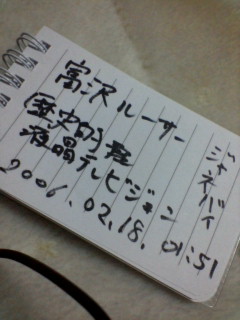 富沢ルーサー
(歴史的)
液晶テレビジョン
ジャネバイ
2006.02.18. 01:51